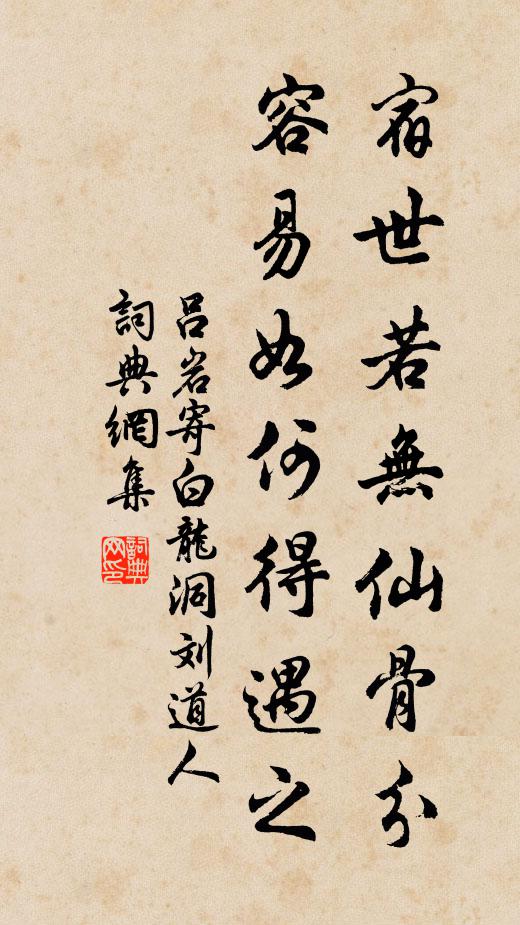 宿世若無仙骨分
容易如何得遇之
吕岩寄白龍洞刘道人
詞典網集
詞典網印